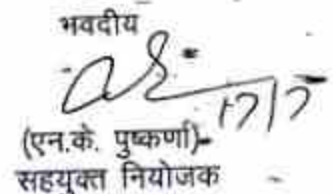 भवदीय
17/7
(एन.के. पुष्कर्णा)
सहयुक्त नियोजक